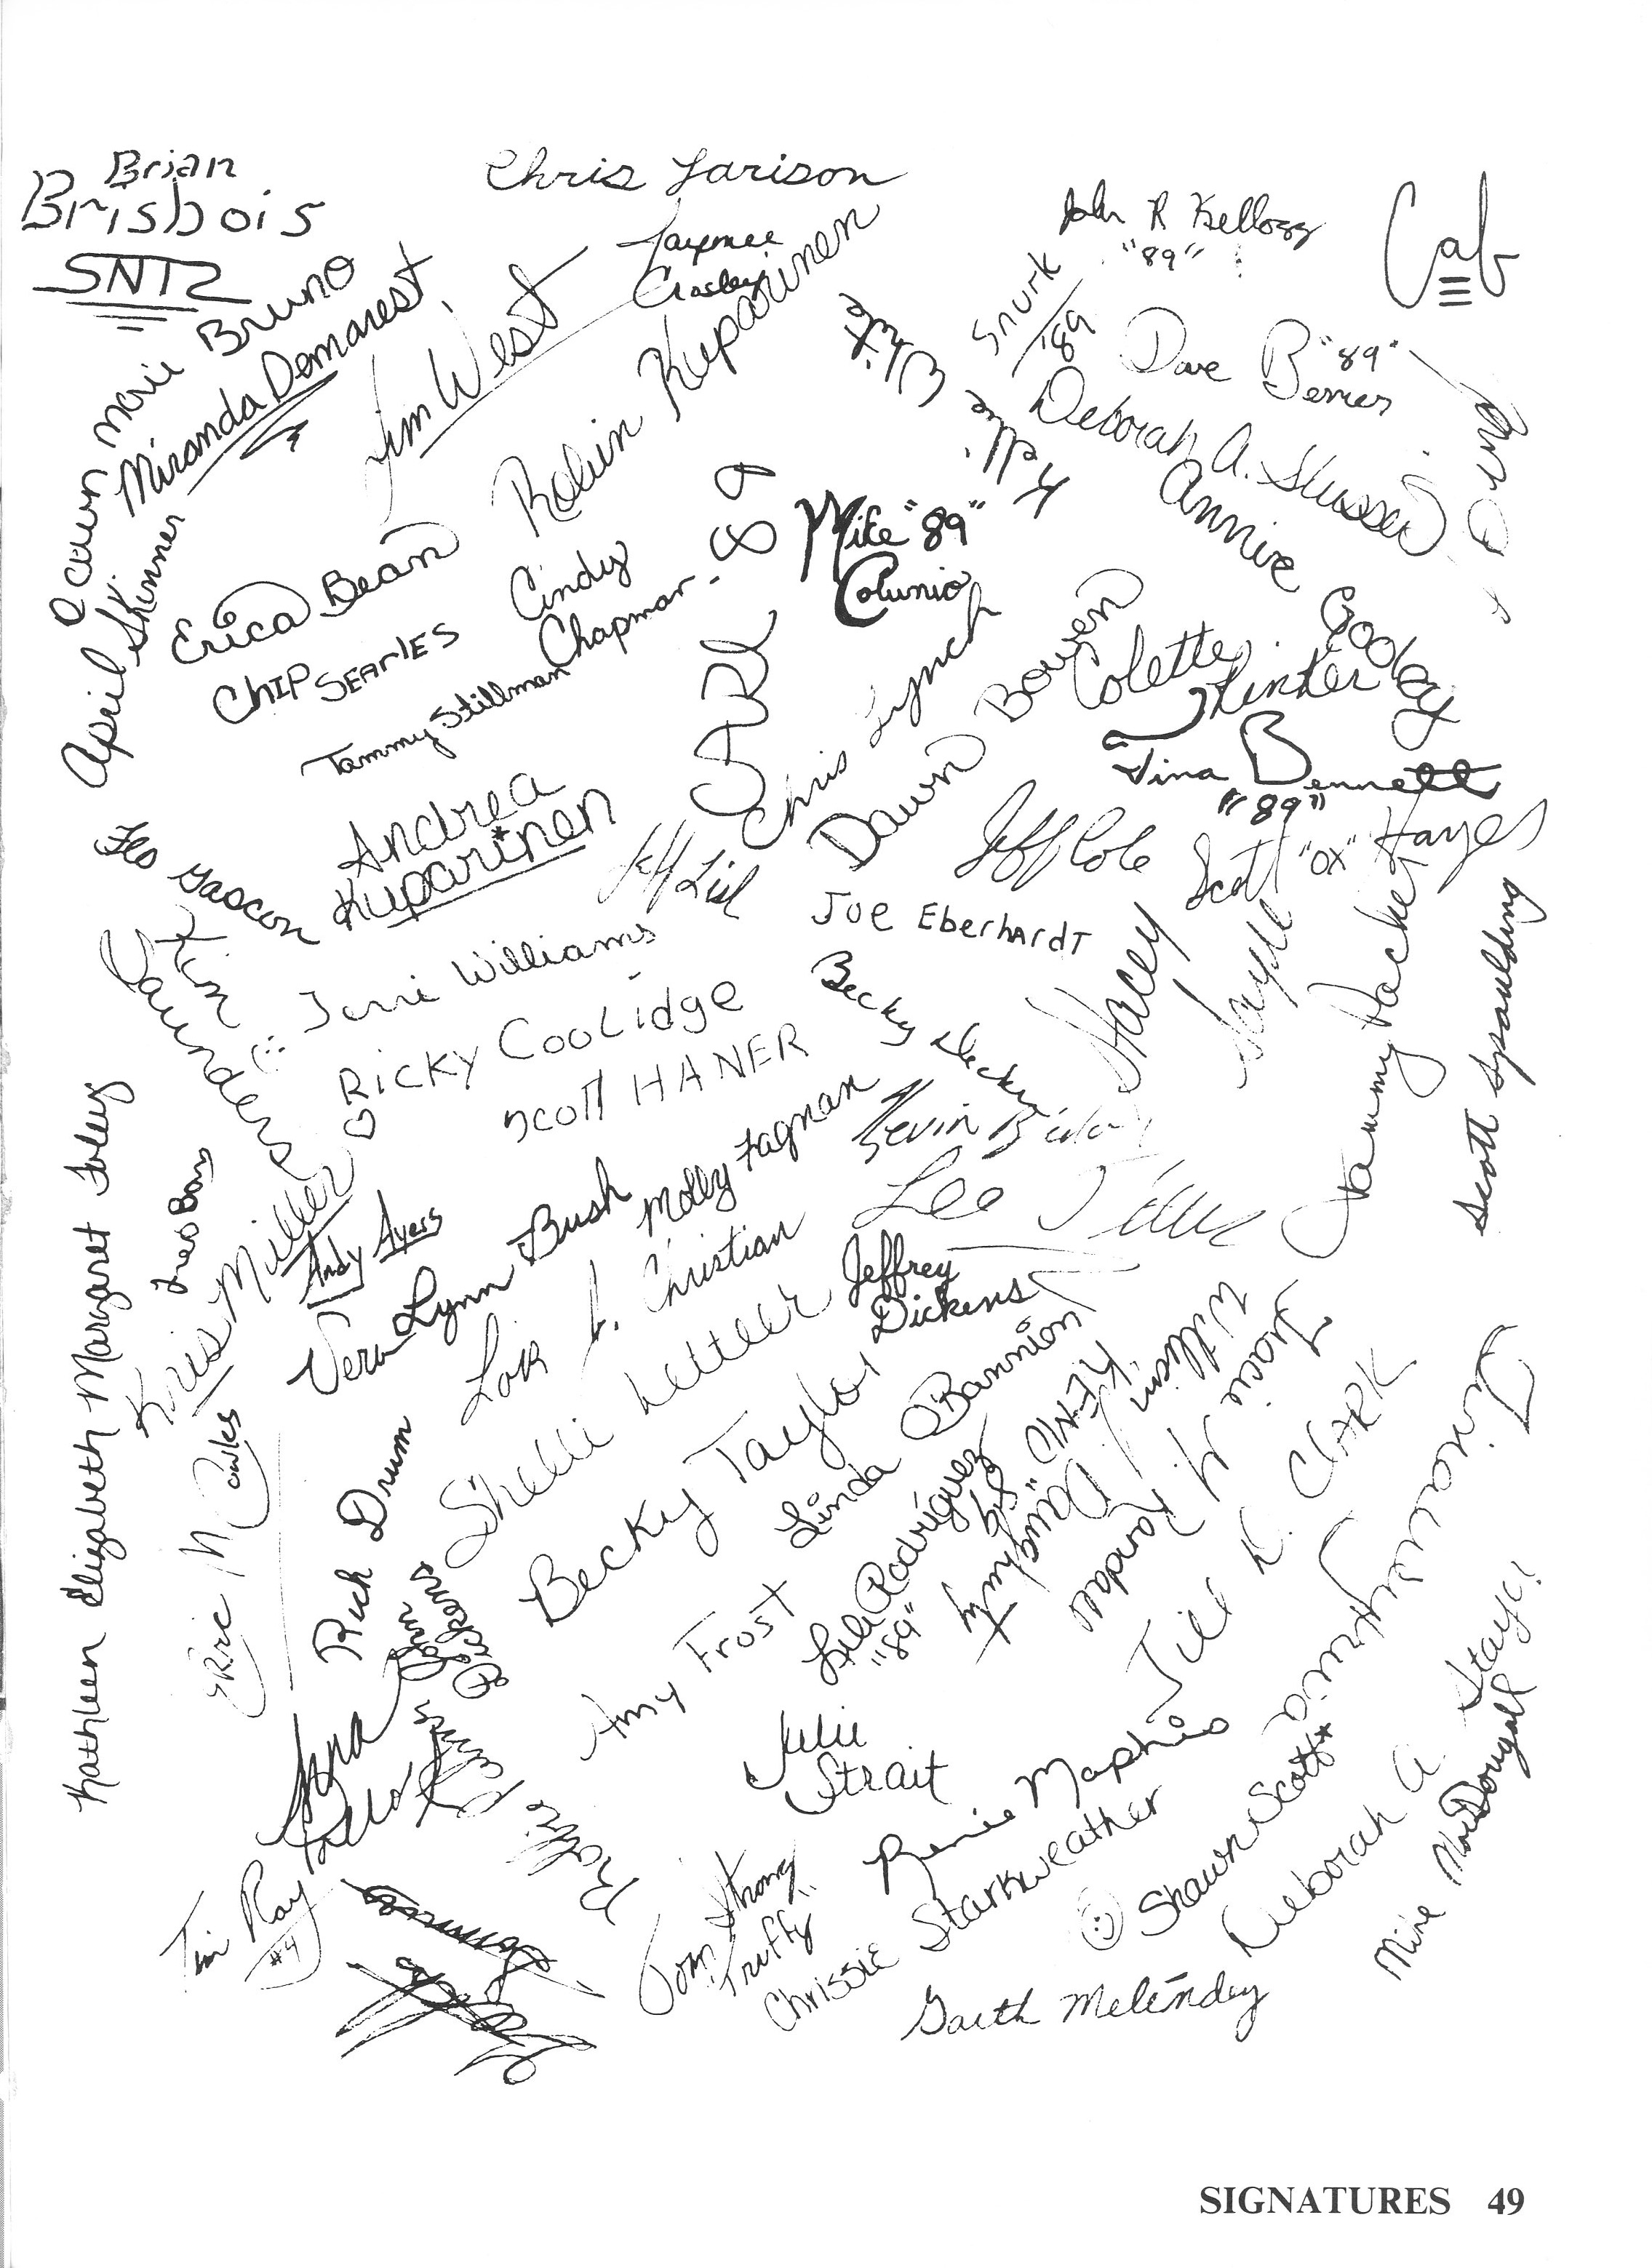 Brian
Brisbois
SNTZ
Chris Larison
Jaymee
Crosley
John R Kellogg
"89"
Cab
Dawn Marie Bruno
Miranda Demarest
Jim West
Robin Kuparinen
Kellie White
Snurk
'89
Dave
"89"
Deborah A. Slusser
April Skinner
Erica Bean
Chip Searles
Cindy
Chapman - 89
Mike "89"
Colunio
Annive Cooley
Tammy Stillman
CARL
Chris Lynch
Dawn Bowen
Colette
Tina Bennett
"89"
Andrea
Kuparinen
Jeff Cole
Scott "OX" Hayes
Joe Eberhardt
Kim
Saunders
Williams
Ricky Coolidge
Scott HANER
Becky Decker
Stacey
Tammy Packer
Scott Spaulding
Kathleen Elizabeth Margaret Foley
Kris Miller
Andy Ayers
Vera Lynn Bush
Molly Fagnan
Kevin
Lee
Lori L. Christian
Jeffrey
Dickens
Shelli Letteer
Becky Taylor
Linda O'Bannion
William
KEAN "89"
David
Tracie H. Randall
Jill D. Clark
Eric M Cowles
Rich Drum
Ann
Dickens
Amy Frost
Rodriguez
"89"
Anna
Julie
Strait
Renie Maphis
Chrissie Starkweather
Shawn Scott*
Deborah A
Stayci
Mike MacDougal
Tim Ray
#4
Tom Strong
"Truffy"
Garth Melendey
SIGNATURES 49